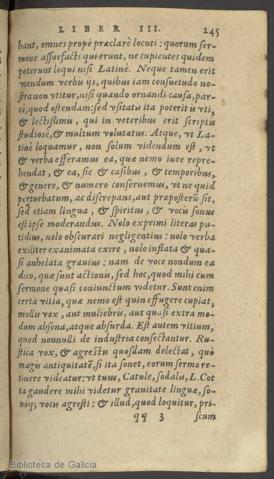 LIBER III. 245
bant, omnes propè præclarè locuti: quorum ser-
mone assuefacti qui erunt, ne cupientes quidem
poterunt loqui nisi Latinè. Neque tamen erit
vtendum verbis ijs, quibus iam consuetudo no-
stra non vtitur, nisi quando ornandi causa, par-
cè, quod ostendam: sed vsitatis ita poterit vti,
& lectissimis, qui in veteribus erit scriptis
studiosè, & multum volutatus. Atque, vt La-
tinè loquamur, non solum videndum est, vt
& verba efferamus ea, quæ nemo iure repre-
hendat, & ea, sic & casibus, & temporibus,
& genere, & numero conseruemus, vt ne quid
perturbatum, ac discrepans, aut præposterũ sit,
sed etiam lingua, & spiritus, & vocis sonus
est ipse moderandus. Nolo exprimi literas pu-
tidius, nolo obscurari negligentius: nolo verba
exiliter exanimata exire, nolo inflata & qua-
si anhelata grauius: nam de voce nondum ea
dico, quæ sunt actionis, sed hoc, quod mihi cum
sermone quasi coniunctum videtur. Sunt enim
certa vitia, quæ nemo est quin effugere cupiat,
mollis vox, aut muliebris, aut quasi extra mo-
dum absona, atque absurda. Est autem vitium,
quod nonnulli de industria consectantur. Ru-
stica vox, & agrestis quosdam delectat, quò
magis antiquitatē, si ita sonet, eorum sermo re-
tinere videatur: vt tuus, Catule, sodalis, L. Cot
ta gaudere mihi videtur grauitate linguæ, so-
noq; vocis agresti: & illud, quod loquitur, pri-
qq 3 scum
Biblioteca de Galicia